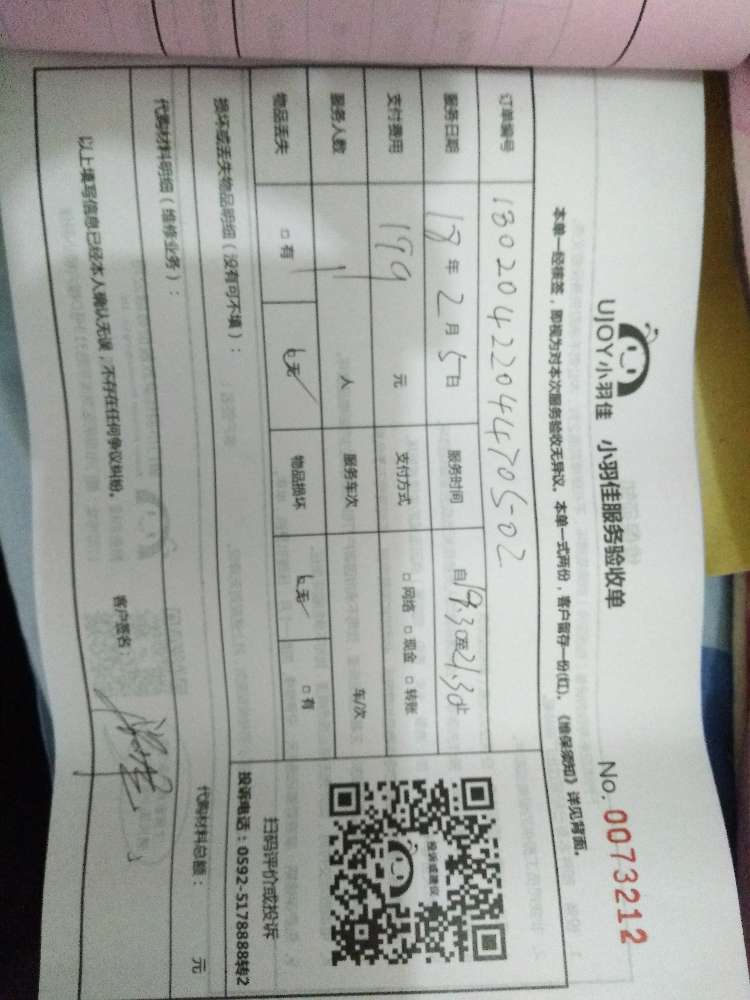 UJOY小羽佳 小羽佳服务验收单
No. 0073212
本单一经核签，即视为对本次服务验收无异议。本单一式两份，客户留存一份(红)。《维保须知》详见背面。
订单编号 180204220444705-02
服务日期 18年2月5日 服务时间 自19:30至21:30止
支付费用 199 元 支付方式 □网络 □现金 □转账
服务人数 1 人 服务车次 车/次
物品丢失 □有 □无✓ 物品损坏 □无✓ □有
损坏或丢失物品明细（没有可不填）：
投诉或建议
扫码评价或投诉
投诉电话：0592-5178888转2
代购材料明细（维修业务）： 代购材料总额： 元
以上填写信息已经本人确认无误，不存在任何争议纠纷。 客户签名：